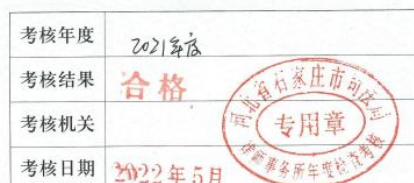 考核年度 2021年度
考核结果 合格
考核机关
河北省石家庄市司法局
专用章
律师事务所年度检查考核
考核日期 2022年5月